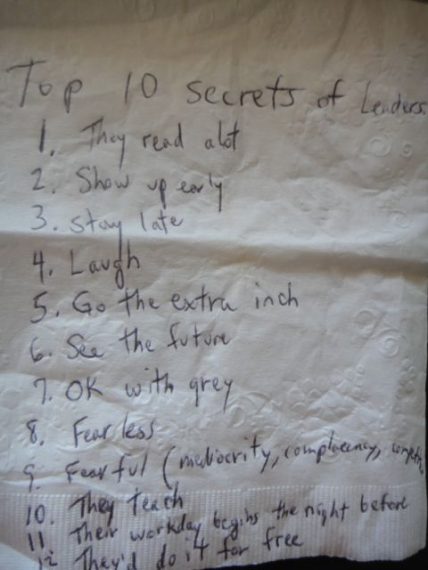 Top 10 secrets of Leaders
1. They read alot
2. Show up early
3. stay late
4. Laugh
5. Go the extra inch
6. See the future
7. OK with grey
8. Fearless
9. Fearful (mediocrity, complacency,
10. They teach
11 Their workday begins the night before
12 They'd do it for free